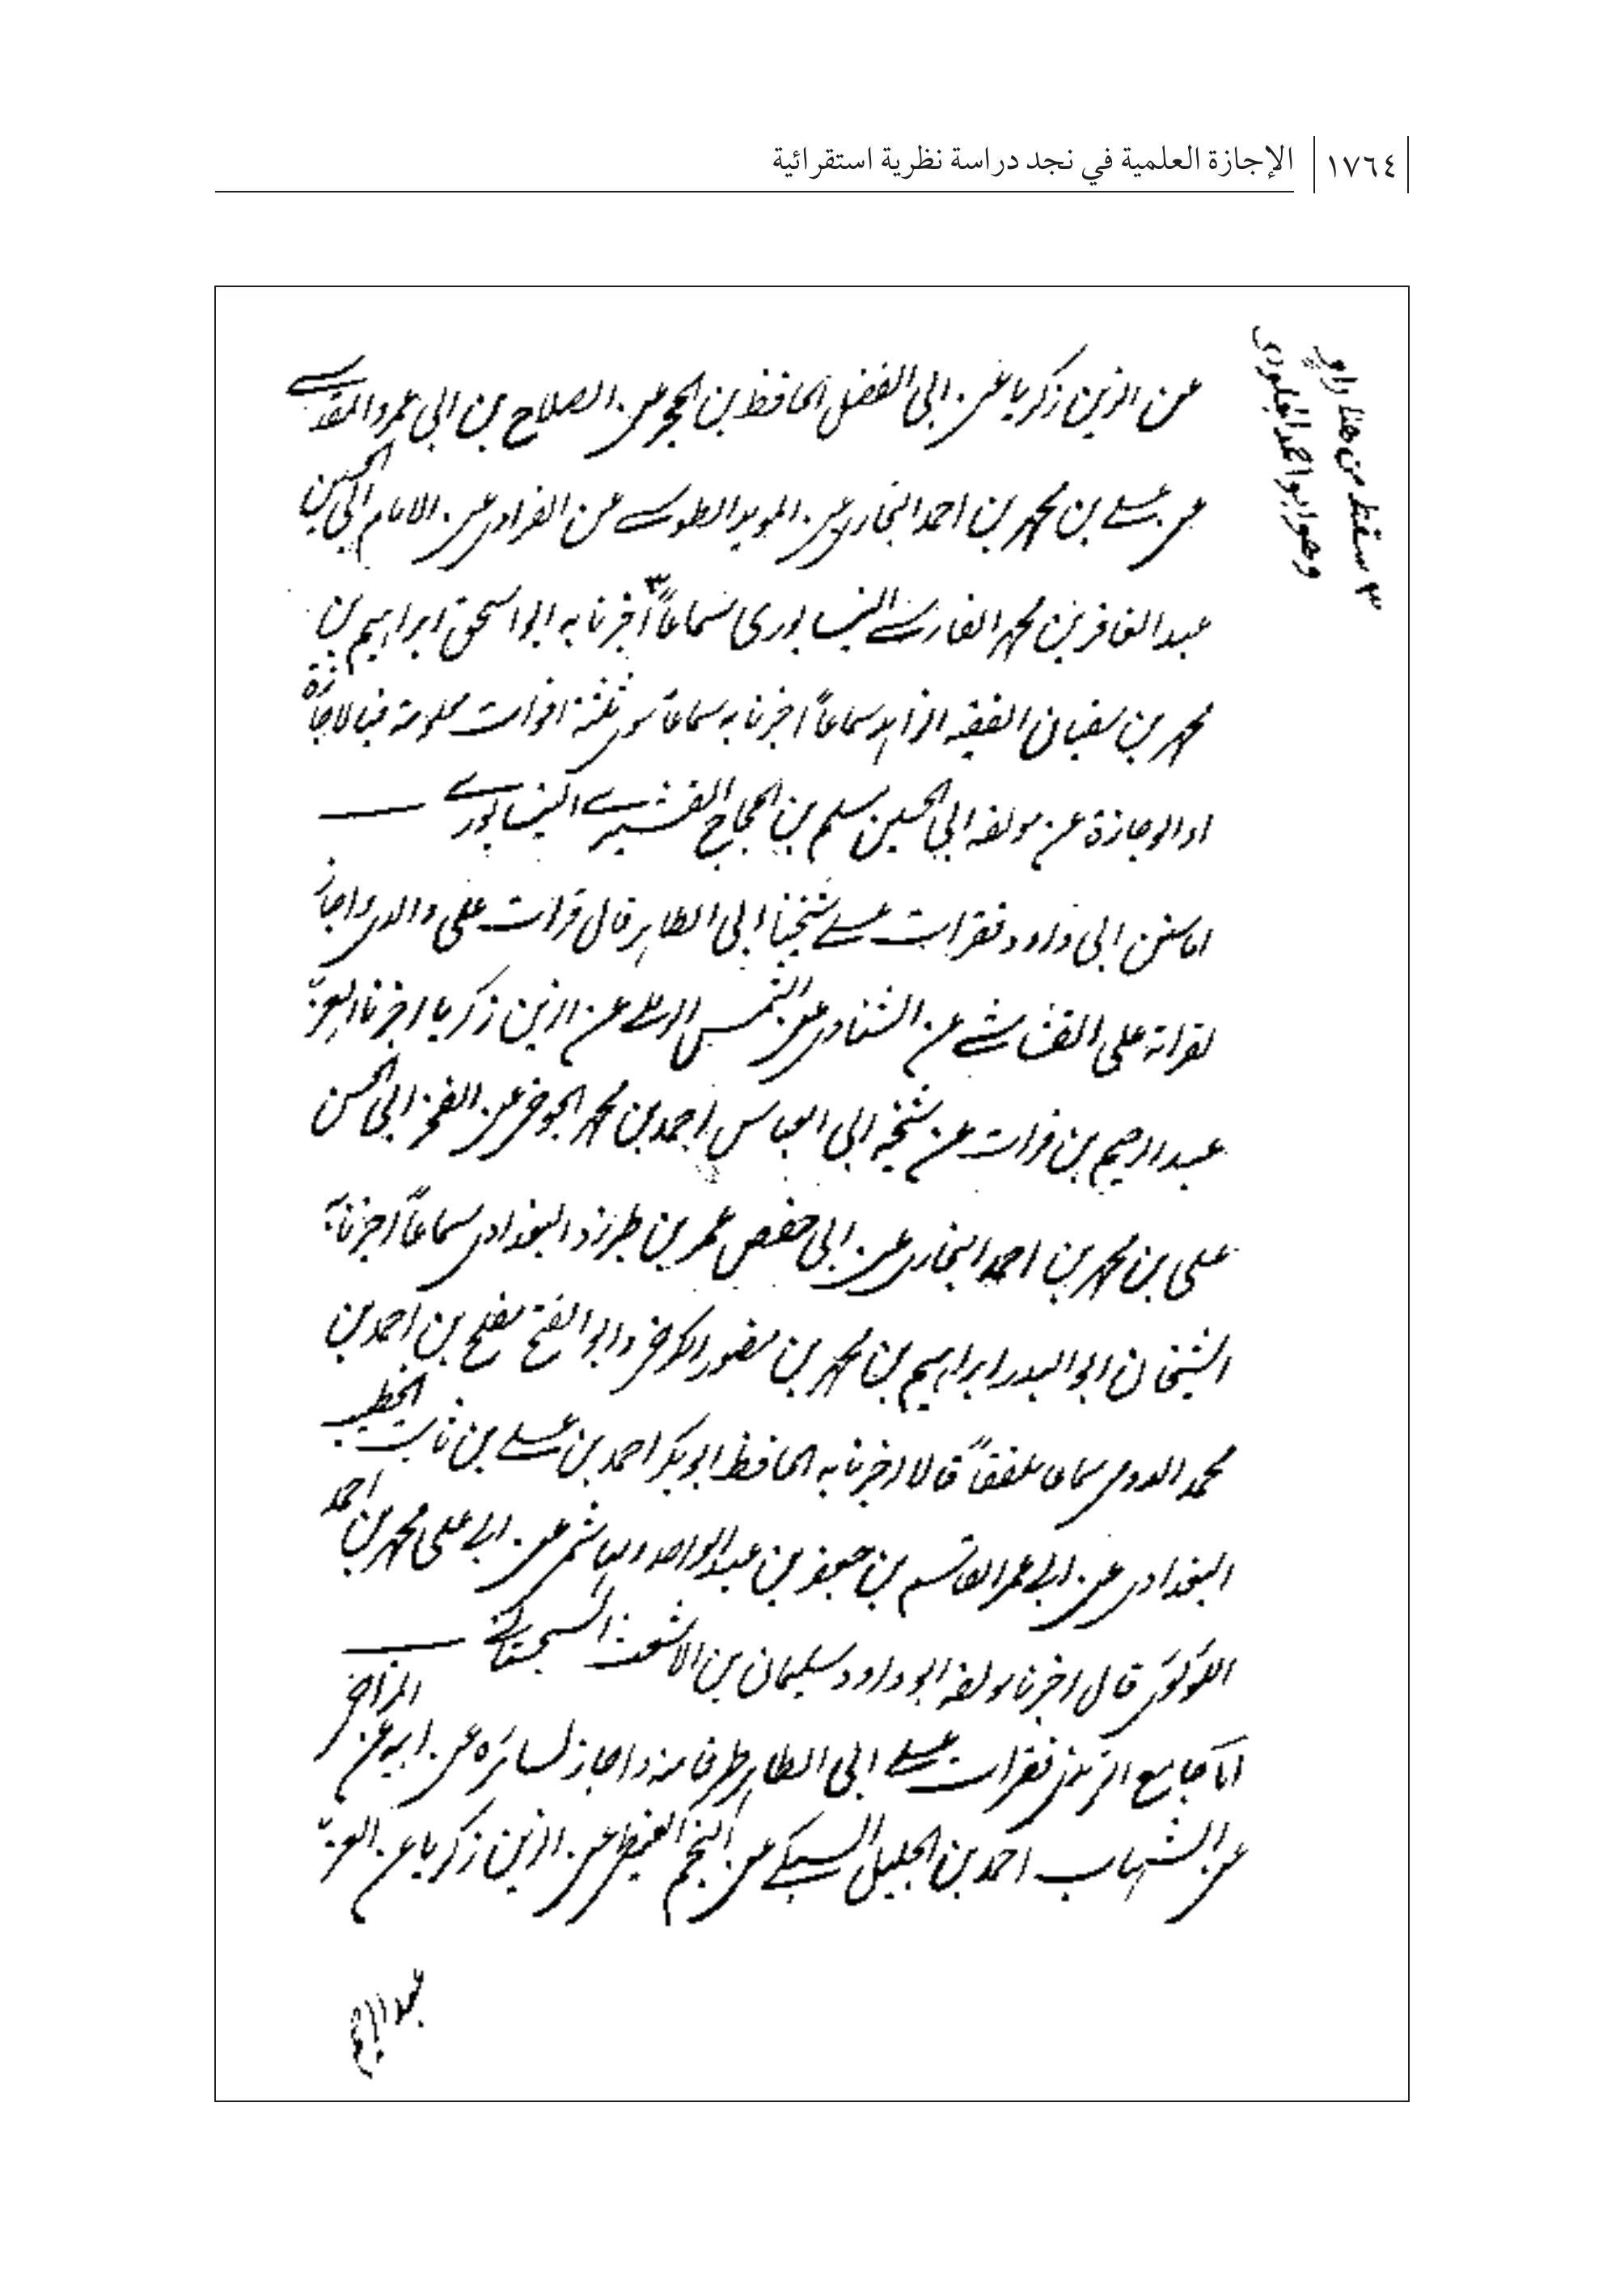 ١٧٦٤ الإجازة العلمية في نجد دراسة نظرية استقرائية
٣ سقط من هنا راوي
وهو ابو احمد الجلودى
عن الزين زكريا عن ابى الفضل الحافظ بن الحجر عن الصلاح بن ابى عمرو المقدسى
عن على بن محمد بن احمد البخارى عن المويد الطوسى عن الفراوى عن الامام ابى الحسين
عبد الغافر بن محمد الفارسى النيسابورى سماعاً ٣ اخبرنا به ابو اسحق ابراهيم بن
محمد بن سفيان الفقيه الزاهد سماعاً اخبرنا به سماعا سوى ثلثة افوات معلومة فبالاجازة
او الوجازة عن مولفه ابى الحسين مسلم بن الحجاج القشيرى النيسابورى
اما سنن ابى داود فقرات على شيخنا ابى الطاهر قال قرات على والدى واجاز
لقراته على القشاشى عن الشناوى عن الشمس الرملى عن الزين زكريا اخبرنا العز
عبد الرحيم بن فرات عن شيخه ابى العباس احمد بن محمد الجوخى عن الفخر ابى الحسن
على بن محمد بن احمد البخارى عن ابى حفص عمر بن طبرزد البغدادى سماعاً اخبرنا به
الشيخان ابو البدر ابراهيم بن محمد بن منصور الكرخى وابو الفتح مفلح بن احمد بن
محمد الدومى سماعا ملفقاً قالا اخبرنا به الحافظ ابو بكر احمد بن على بن ثابت الخطيب
البغدادى عن ابى عمر القاسم بن جعفر بن عبد الواحد الهاشمى عن ابى على محمد بن احمد
اللولوى قال اخبرنا مولفه ابو داود سليمان بن الاشعث السجستانى
اما جامع الترمذى فقرات على ابى الطاهر طرفا منه واجاز لسائره عن ابيه عن المزاحى
عن الشهاب احمد بن الخليل السبكى عن النجم الغيطى عن الزين زكريا عن العز